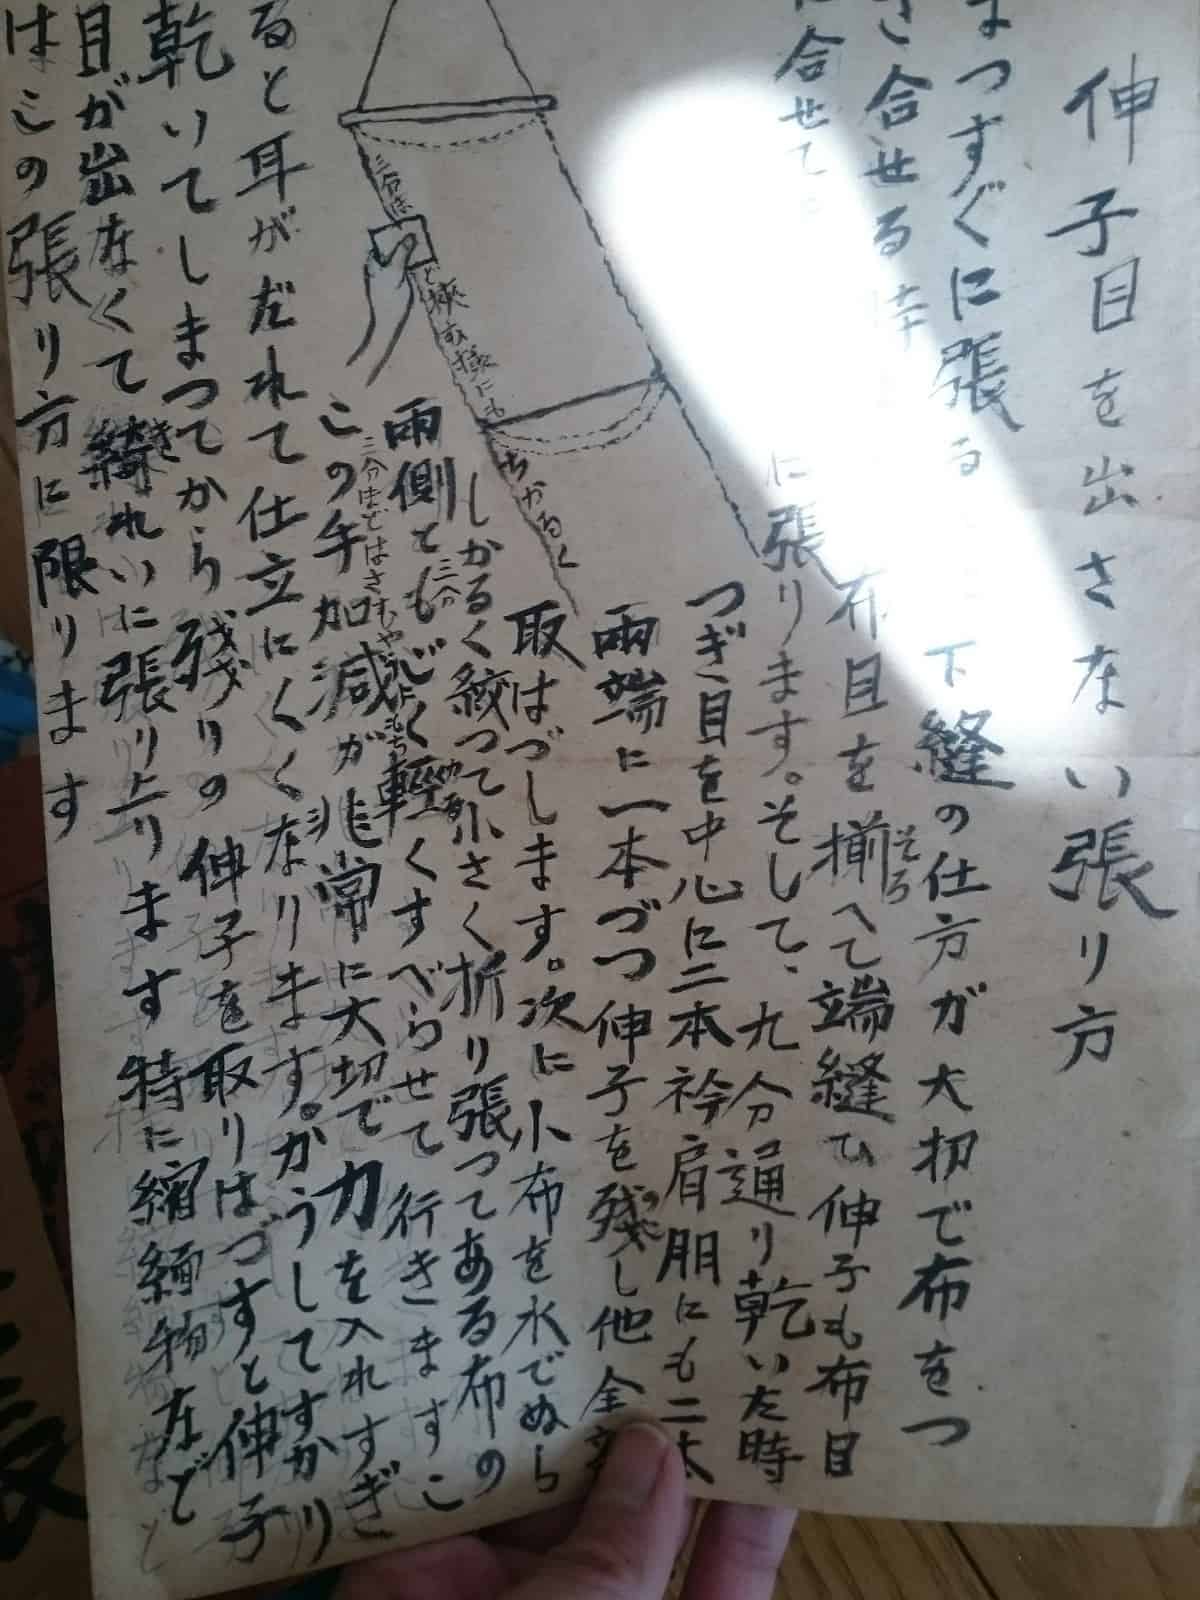 伸子目を出さない張り方
まつすぐに張る 下縫の仕方が大切で布をつ
き合せる時 布目を揃へて端縫ひ伸子も布目
そろ
に合せて。 に張ります。そして、九分通り乾いた時
つぎ目を中心に二本衿肩明にも二本
両端に一本づつ伸子を残し他全部
のこ
取はづします。次に小布を水でぬら
しかるく絞つて小さく折り張つてある布の
両側とも三分 軽くすべらせて行きますこ
かる
三分はさむ
この手加減が非常に大切で力を入れすぎ
ると耳がだれて仕立にくくなります。かうしてすかり
乾いてしまつてから残りの伸子を取りはづすと伸子
目が出なくて綺れいに張り上ります特に縮緬物など
き
はこの張り方に限ります
三分
で挾む様にも
ちかるく